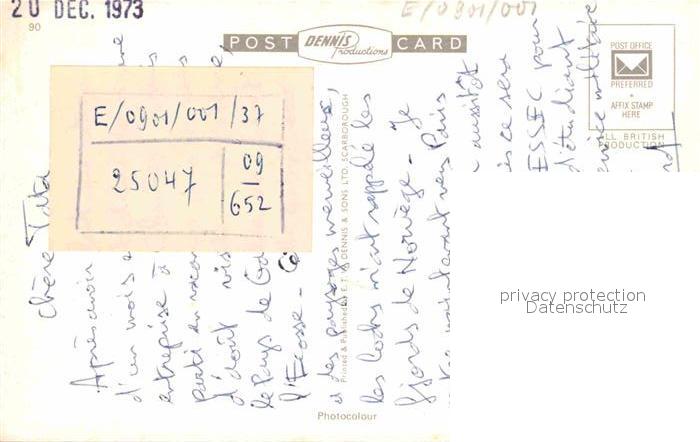 20 DEC. 1973
E/0901/001
90
POST DENNIS Productions CARD
POST OFFICE
PREFERRED
AFFIX STAMP
HERE
ALL BRITISH
PRODUCTION
E/0901/001/37
25047
09
652
Chère Tata
Après avoir
d'un mois
entreprise à
parti en
d'août
le Pays de Ga
l'Ecosse -
et des paysages merveilleux,
les lochs m'ont rappelé les
fjords de Norvège - Je
maintenant vers Paris
aussitôt
ce sera
ESSEC pour
d'étudiant
militaire
Printed & Published by E. T. W. DENNIS & SONS LTD. SCARBOROUGH
Photocolour
privacy protection
Datenschutz